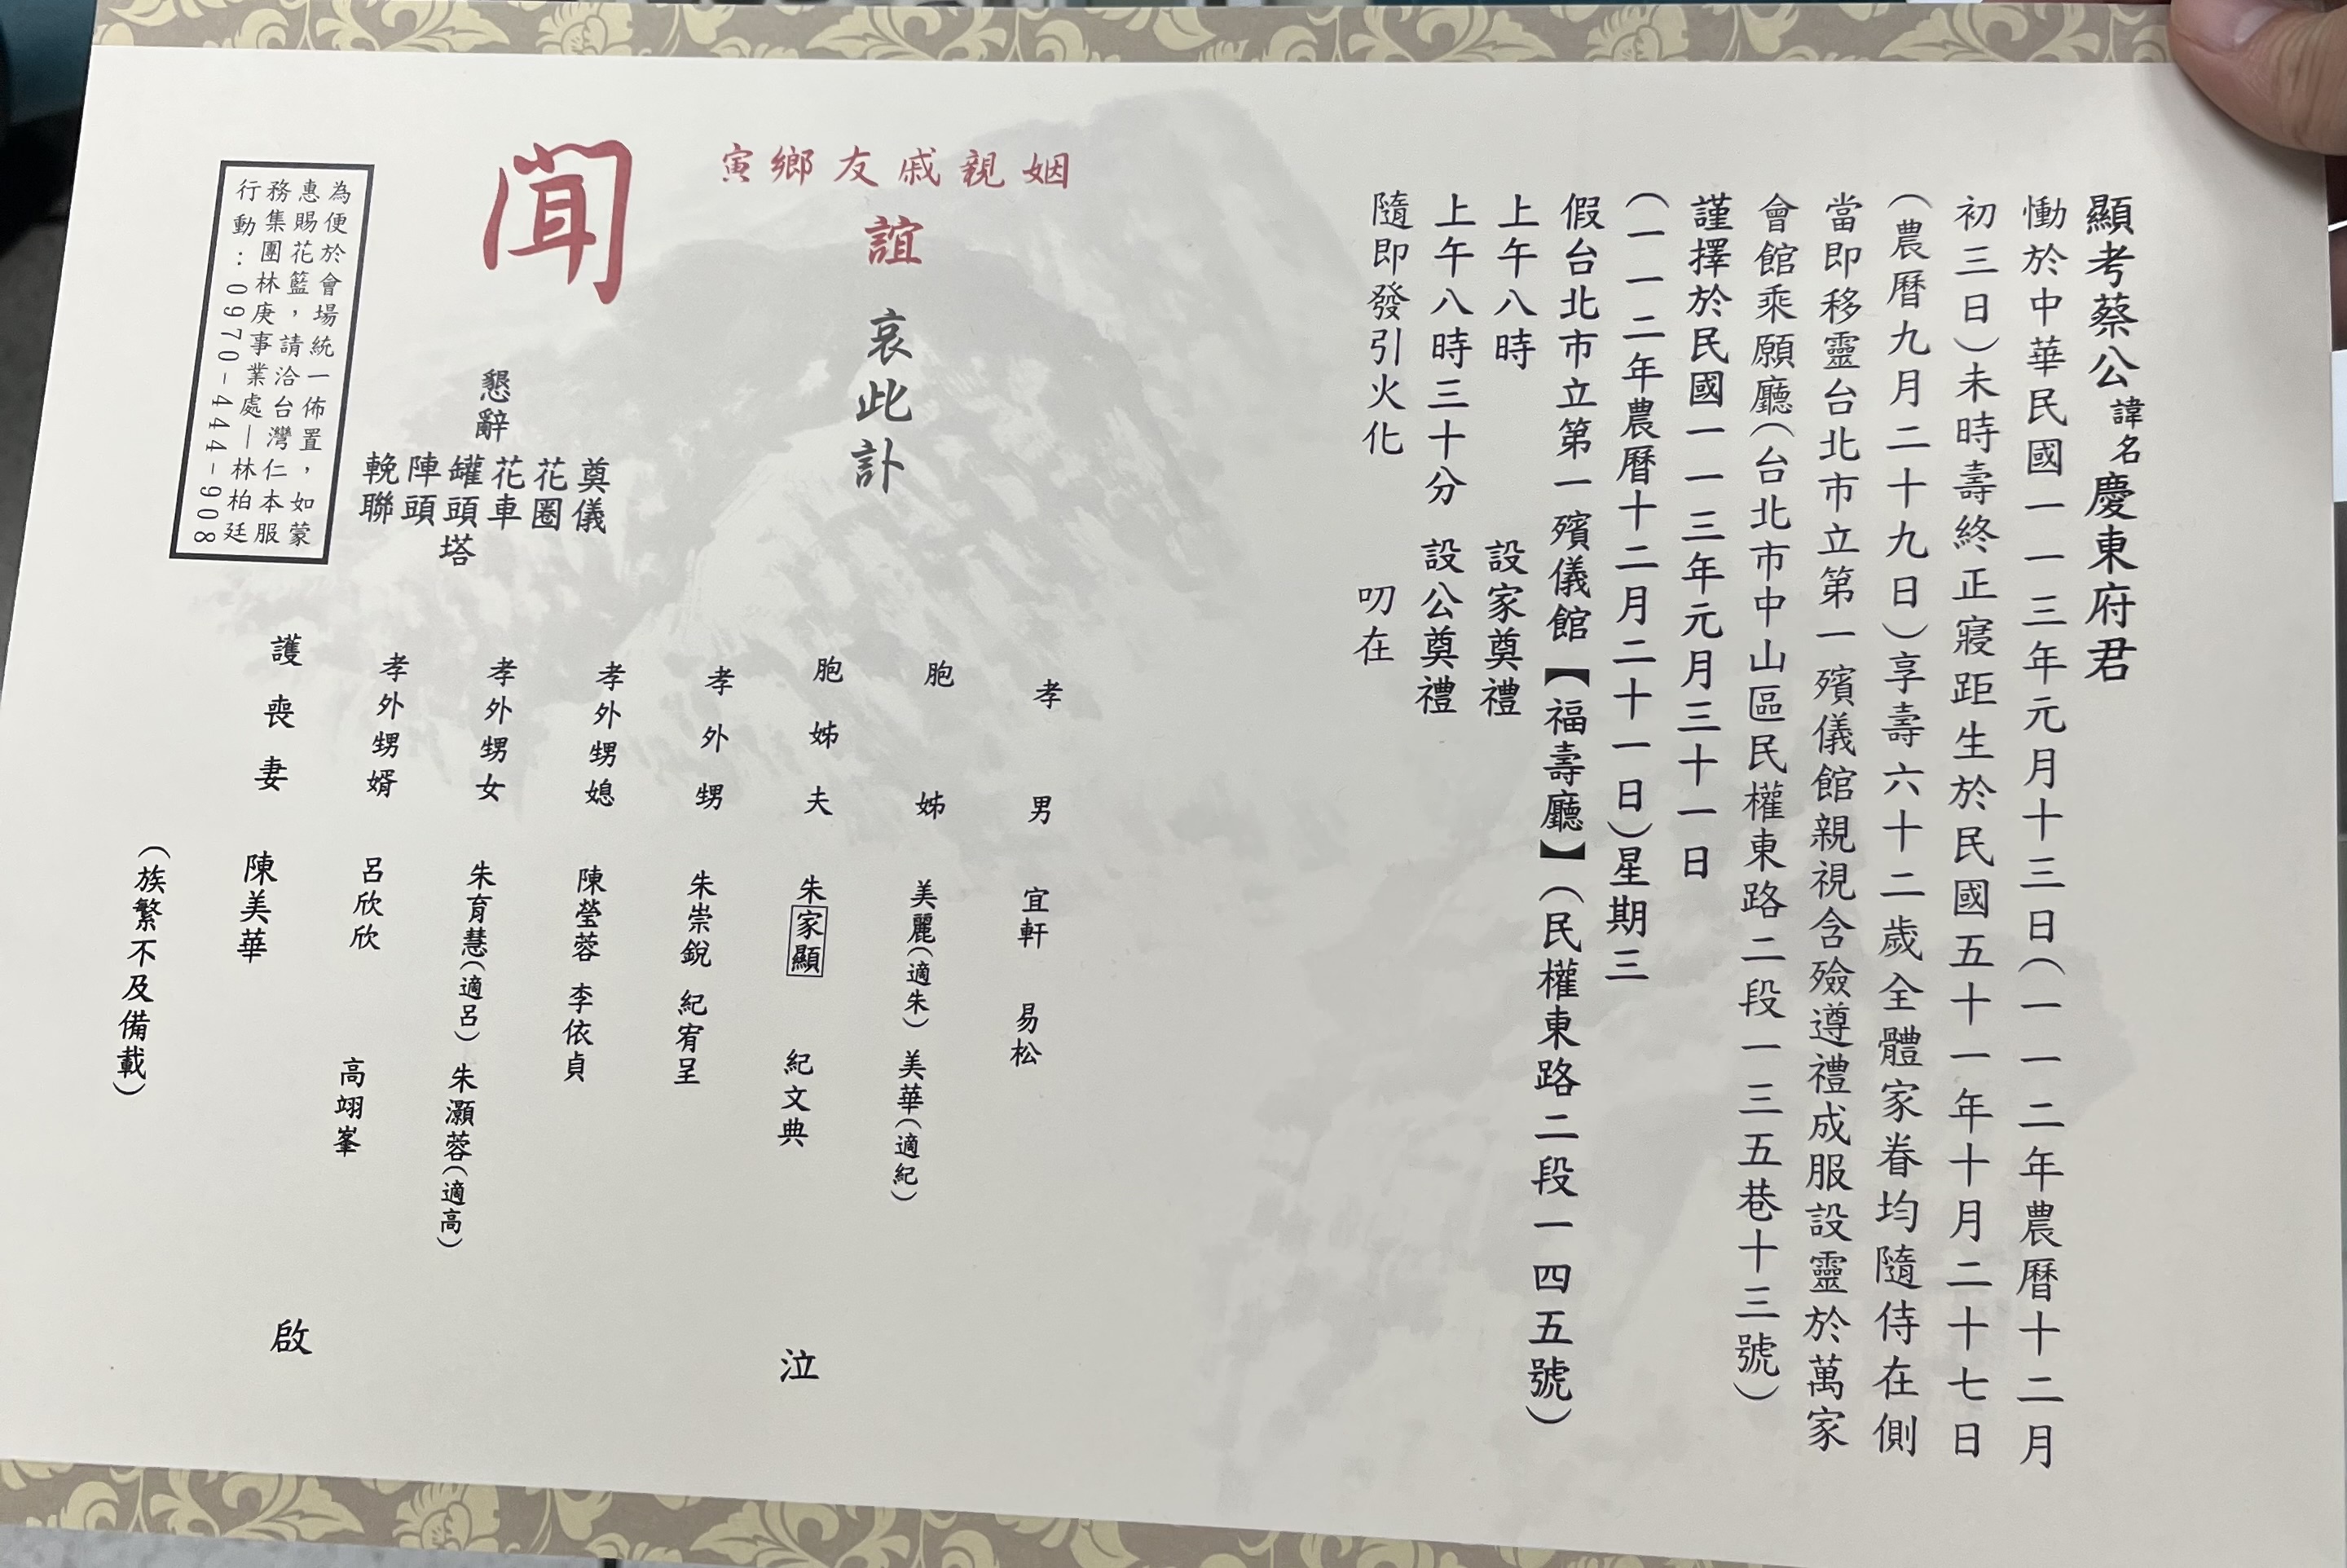 顯考蔡公諱名慶東府君
慟於中華民國一一三年元月十三日(一一二年農曆十二月
初三日)未時壽終正寢距生於民國五十一年十月二十七日
(農曆九月二十九日)享壽六十二歲全體家眷均隨侍在側
當即移靈台北市立第一殯儀館親視含殮遵禮成服設靈於萬家
會館乘願廳(台北市中山區民權東路二段一三五巷十三號)
謹擇於民國一一三年元月三十一日
(一一二年農曆十二月二十一日)星期三
假台北市立第一殯儀館【福壽廳】(民權東路二段一四五號)
上午八時 設家奠禮
上午八時三十分 設公奠禮
隨即發引火化 叨在
姻親戚友鄉寅
誼
哀此訃
聞
懇辭
奠儀
花圈
花車
罐頭塔
陣頭
輓聯
為便於會場統一佈置,如蒙
惠賜花籃,請洽台灣仁本服
務集團林庚事業處—林柏廷
行動:0970-444-908
孝男 宜軒 易松
胞姊 美麗(適朱) 美華(適紀)
胞姊夫 朱家顯 紀文典
孝外甥 朱崇銳 紀宥呈
孝外甥媳 陳瑩蓉 李依貞
孝外甥女 朱育慧(適呂) 朱灝蓉(適高)
孝外甥婿 呂欣欣 高翊峯
護喪妻 陳美華
(族繁不及備載)
泣
啟